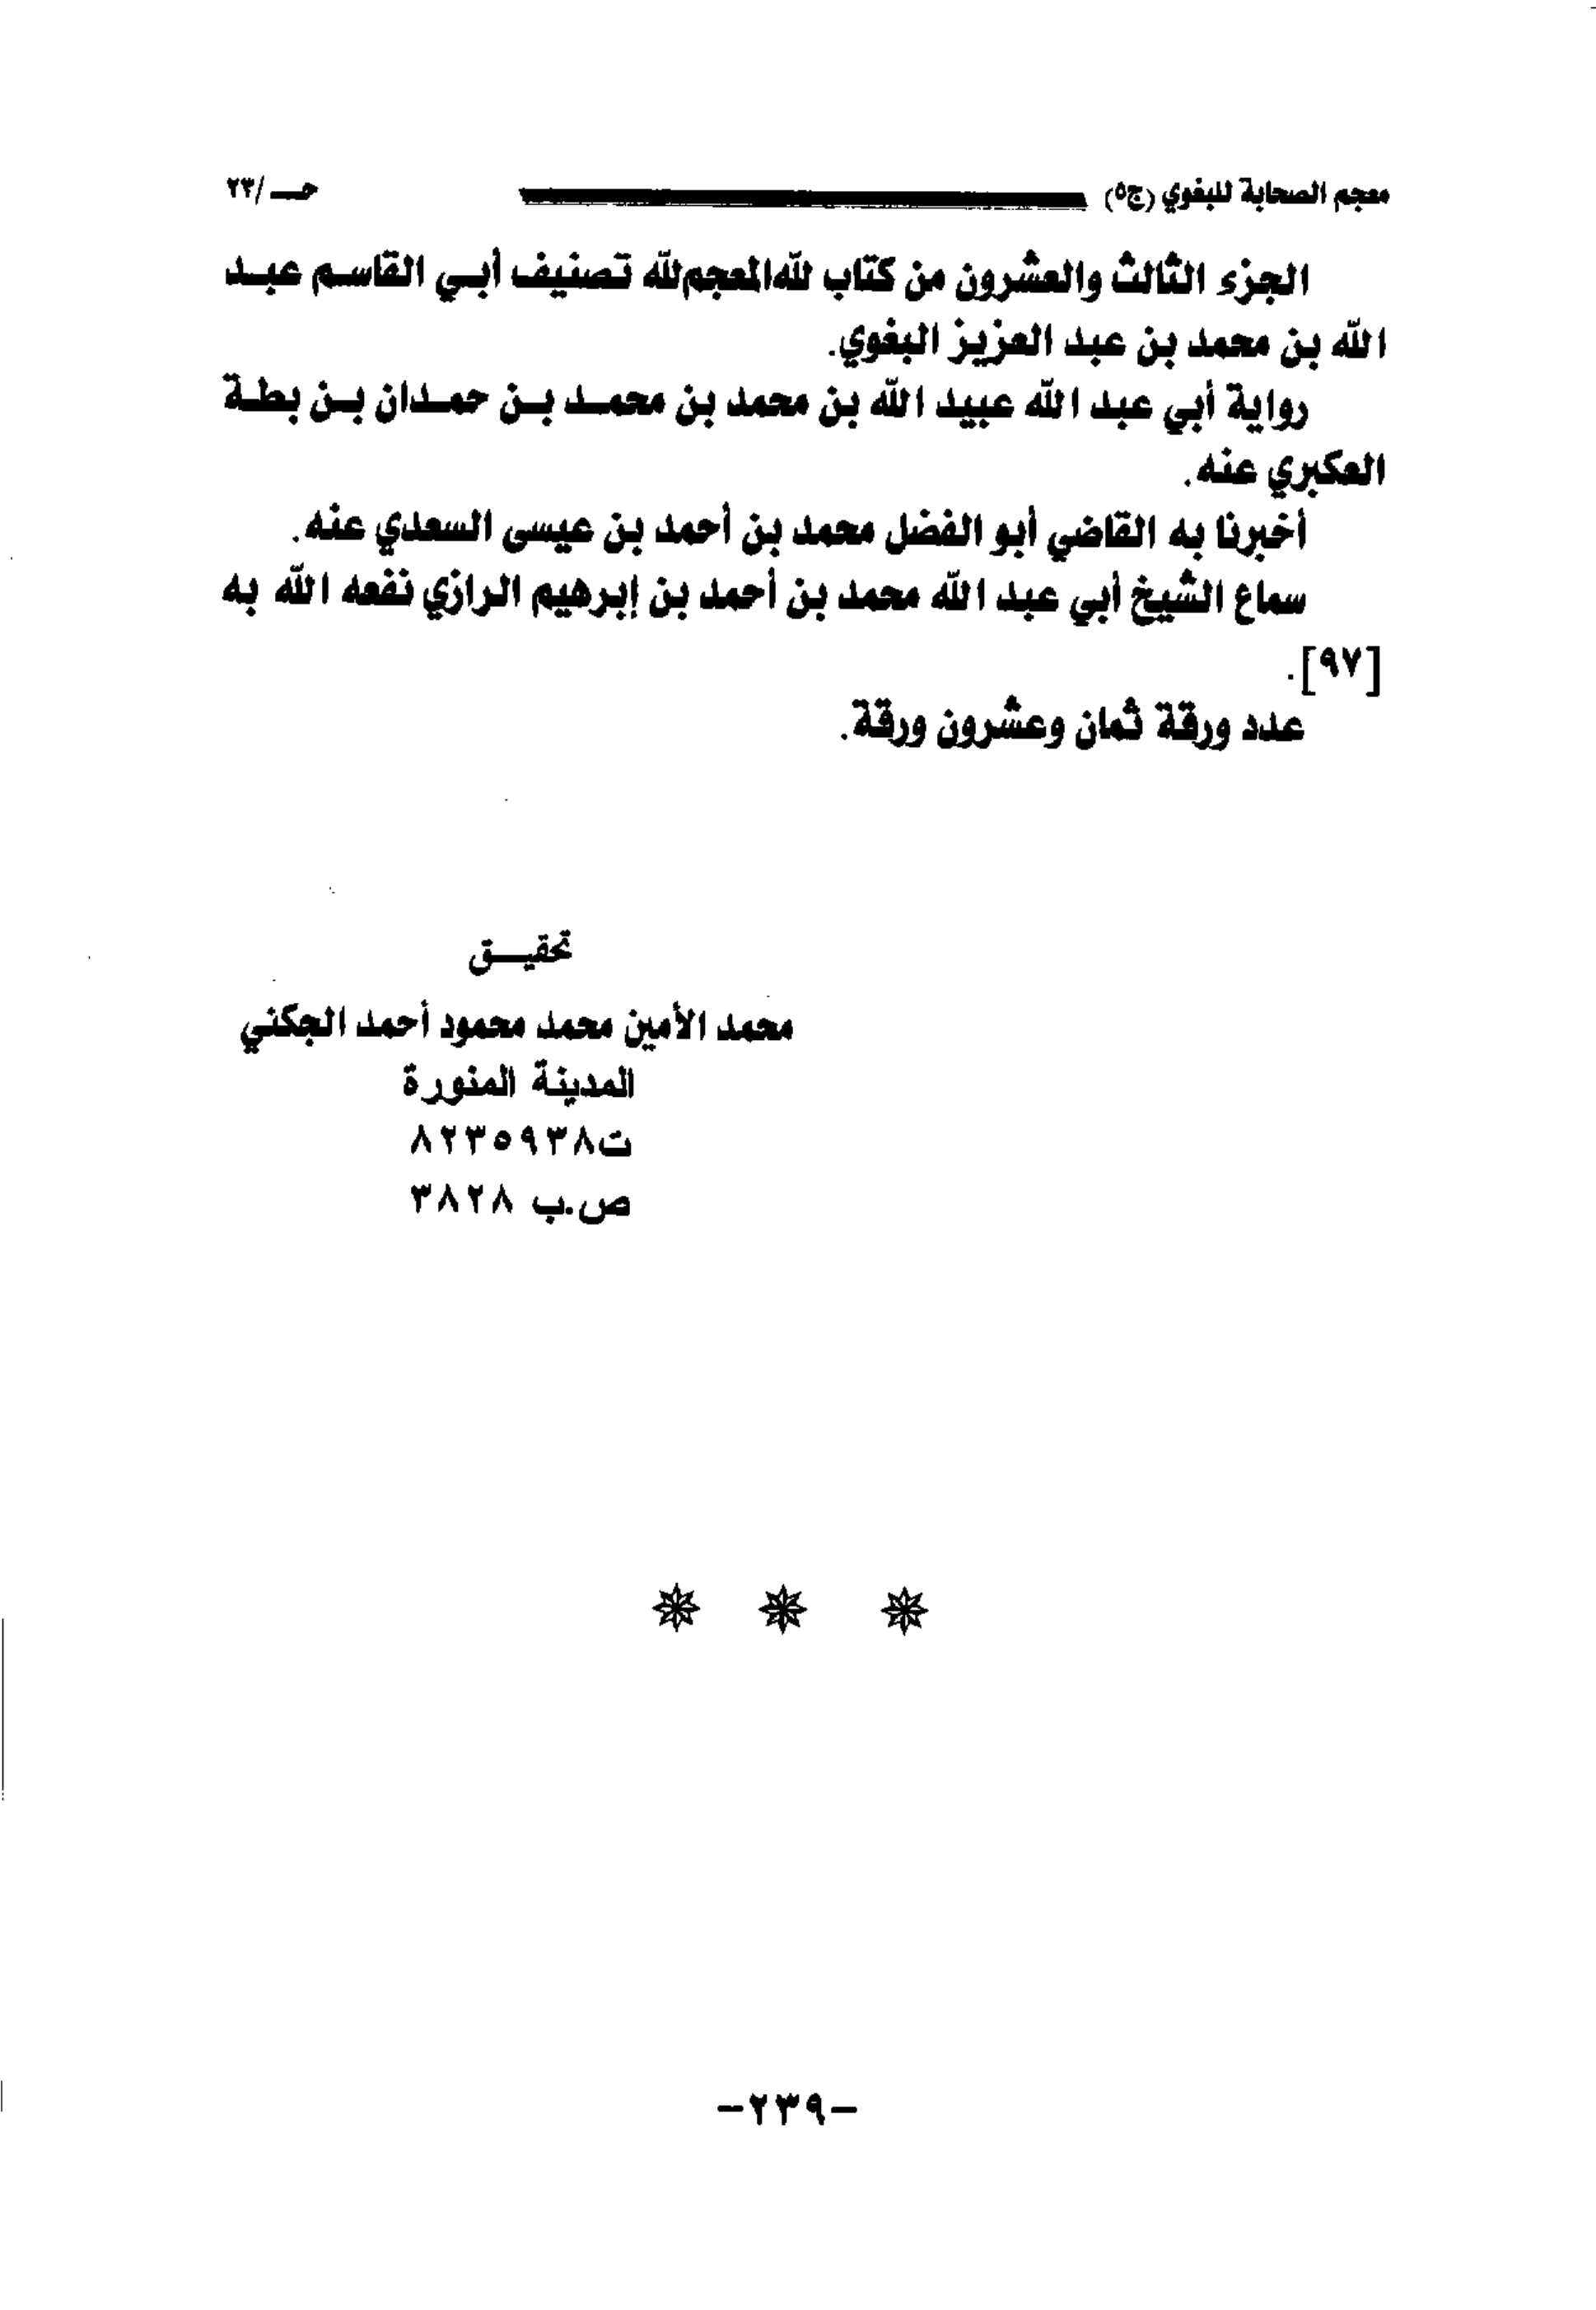 معجم الصحابة للبغوي (ج٥) حـــ /٢٣
الجزء الثالث والعشرون من كتاب للهالمعجملله تصنيف أبي القاسم عبد
الله بن محمد بن عبد العزيز البغوي.
رواية أبي عبد الله عبيد الله بن محمد بن محمد بن حمدان بن بطة
العكبري عنه.
أخبرنا به القاضي أبو الفضل محمد بن أحمد بن عيسى السعدي عنه.
سماع الشيخ أبي عبد الله محمد بن أحمد بن إبرهيم الرازي نفعه الله به
[٩٧].
عدد ورقة ثمان وعشرون ورقة.
تحقيـــق
محمد الأمين محمد محمود أحمد الجكني
المدينة المنورة
ت٨٢٣٥٩٣٨
ص.ب ٣٨٢٨
-٢٣٩-